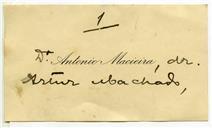 1
Dr. Antonio Macieira, dr.
Artur Machado,